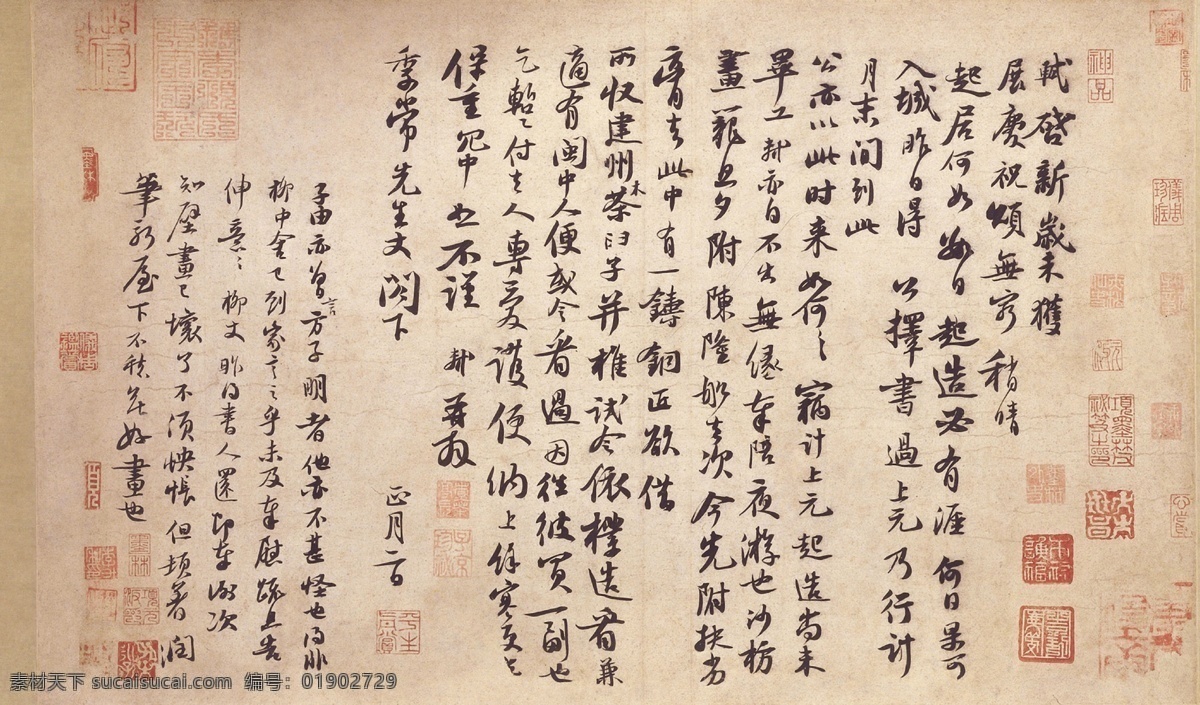 軾啓新歲未獲
展慶祝頌無窮稍晴
起居何如數日起造必有涯何日果可
入城昨日得公擇書過上元乃行計
月末間到此
公亦以此時來如何〻竊計上元起造尚未
畢工軾亦自不出無緣奉陪夜遊也沙枋
畫籠旦夕附陳隆船去次今先附扶劣
膏去此中有一鑄銅匠欲借
所收建州木茶臼子并椎試令依樣造看兼
適有閩中人便或令看過因往彼買一副也
乞暫付去人專愛護便納上餘寒更乞
保重冗中恕不謹軾再拜
季常先生丈閣下正月二日
子由亦曾言方子明者他亦不甚怪也得非
柳中舍已到家言之乎未及奉慰疏且告
伸意〻柳丈昨得書人還即奉謝次
知壁畫已壞了不須怏悵但頓著潤
筆新屋下不愁無好畫也
神品
平生真賞
素材天下 sucaisucai.com 编号：01902729